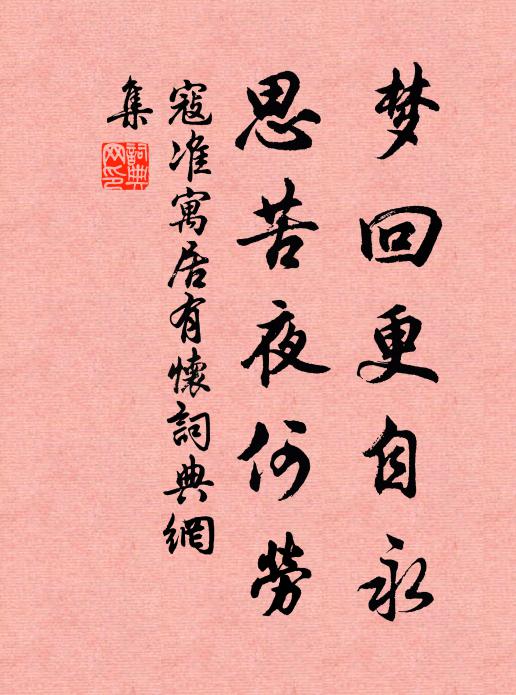 梦回更自永
思苦夜何劳
寇准寓居有懷詞典網
集
詞典网印